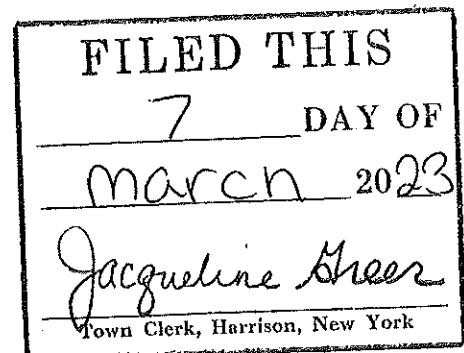 FILED THIS
7 DAY OF
March 2023
Jacqueline Greer
Town Clerk, Harrison, New York